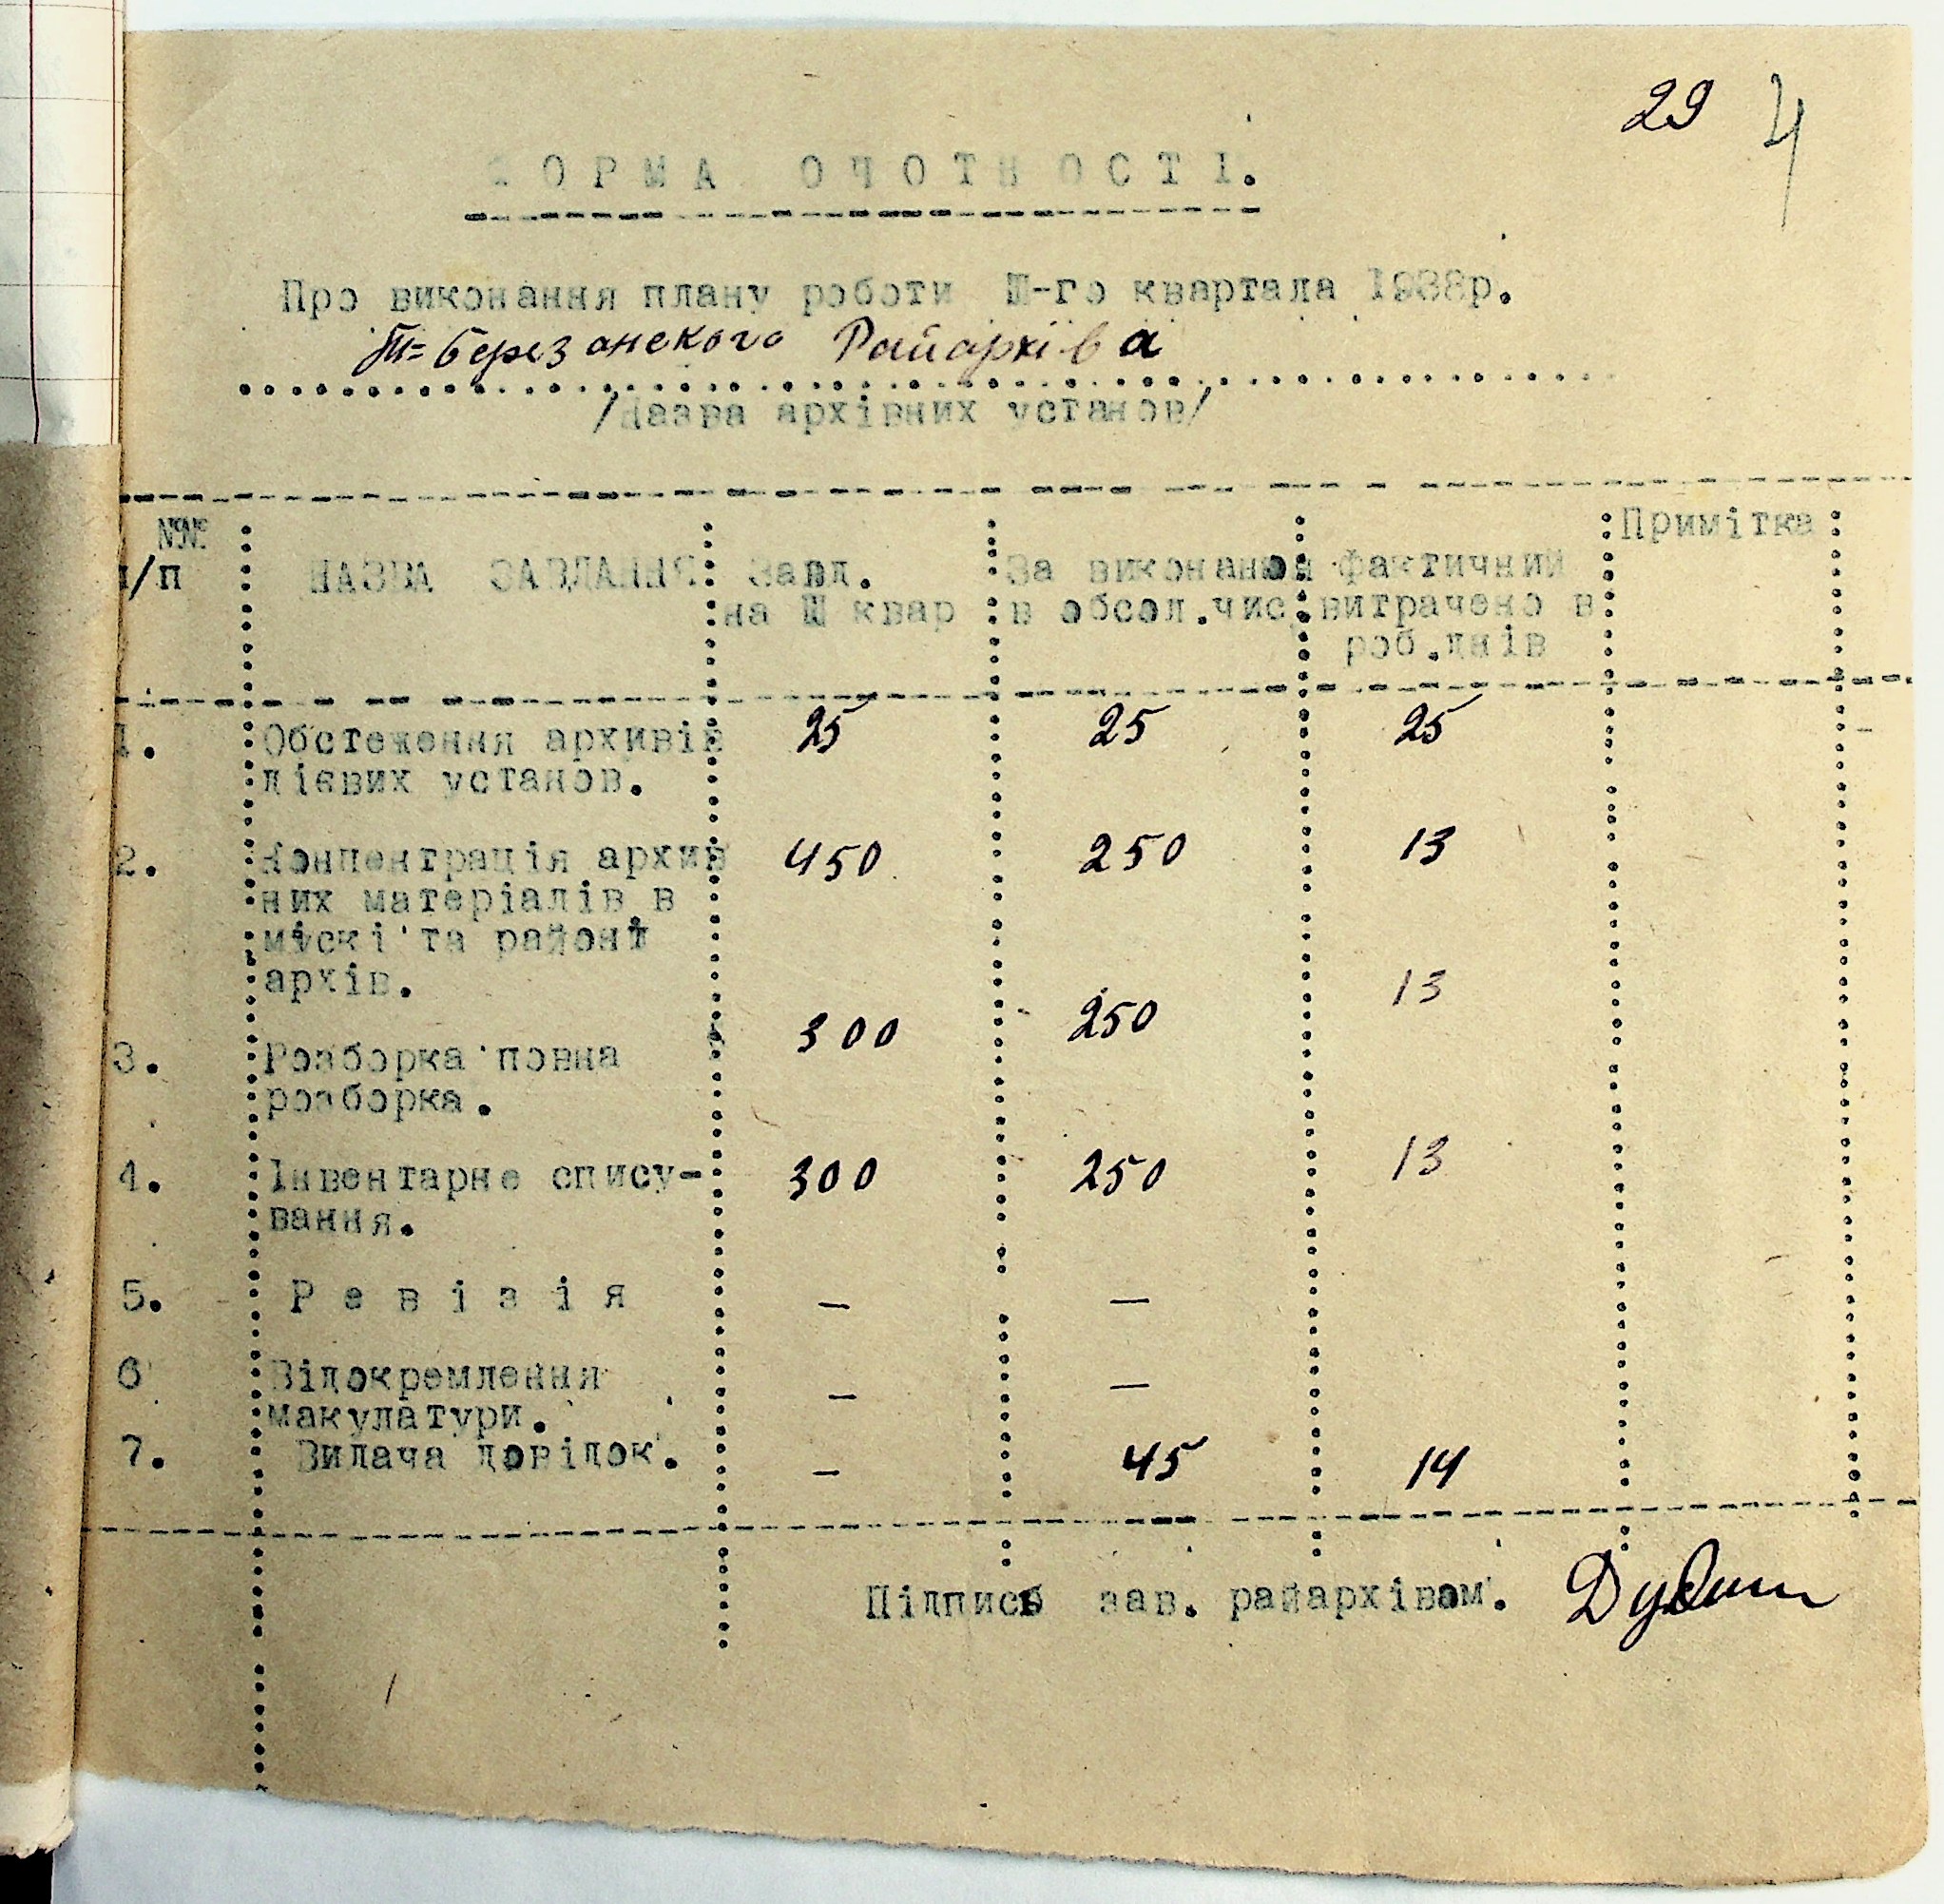 29 4
ФОРМА ОЧОТНОСТІ.
Про виконання плану роботи Ш-го квартала 1938р.
Т=березанского Райархіва
/Назва архівних установ/
№№ Примітка
п/п НАЗВА ЗАВДАННЯ Завд. За виконаною фактичний
на Ш квар в обсол.чис витрачено в
роб.днів
1. Обстеження архивів 25 25 25
дієвих установ.
2. Концентрація архив 450 250 13
них матеріалів в
міскі та районі
архів. 13
300 250
3. Розборка повна
розборка.
4. Інвентарне спису- 300 250 13
вання.
5. Ревізія — —
6 Відокремлення — —
макулатури.
7. Видача довідок. — 45 14
Підпись зав. райархівом.